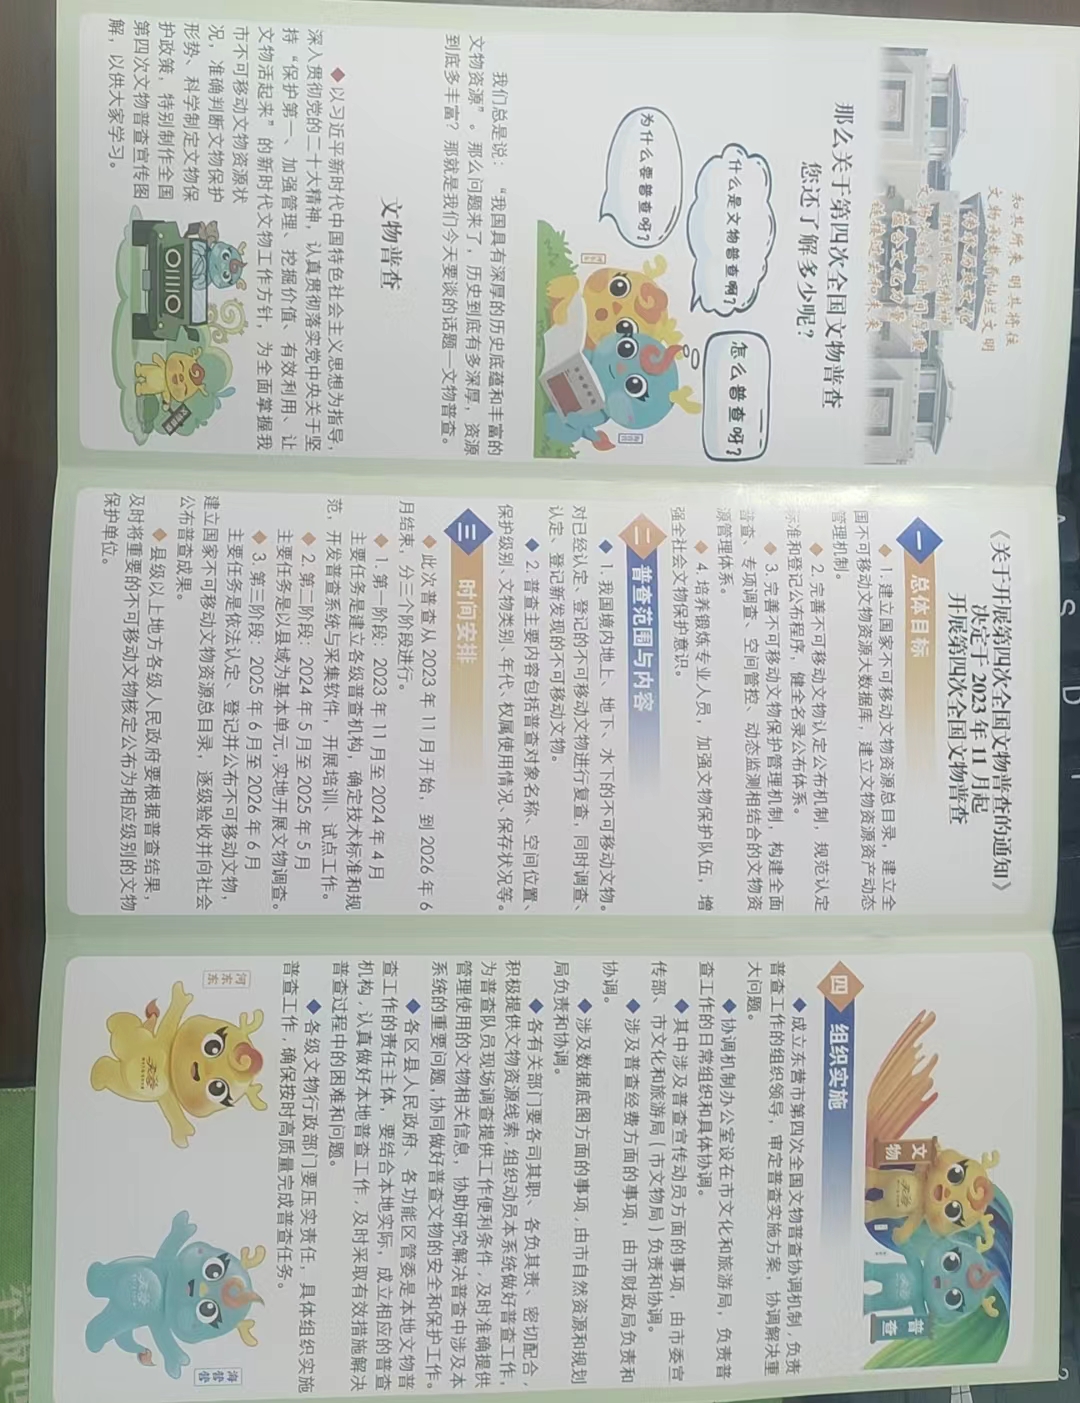 知其所来 明其将往
文物承载着灿烂文明
传承历史文化
维系民族精神
文物普查
那么关于第四次全国文物普查
您还了解多少呢?
什么是文物普查啊?
怎么普查呀?
为什么要普查呀?
我们总是说：“我国具有深厚的历史底蕴和丰富的
文物资源”。那么问题来了，历史到底有多深厚，资源
到底多丰富？那就是我们今天要谈的话题—文物普查。
文物普查
以习近平新时代中国特色社会主义思想为指导，
深入贯彻党的二十大精神，认真贯彻落实党中央关于坚
持“保护第一、加强管理、挖掘价值、有效利用、让
文物活起来”的新时代文物工作方针，为全面掌握我
市不可移动文物资源状
况，准确判断文物保护
形势、科学制定文物保
护政策，特别制作全国
第四次文物普查宣传图
解，以供大家学习。
《关于开展第四次全国文物普查的通知》
决定于 2023 年 11 月起
开展第四次全国文物普查
一 总体目标
1. 建立国家不可移动文物资源总目录，建立全
国不可移动文物资源大数据库，建立文物资源资产动态
管理机制。
2. 完善不可移动文物认定公布机制，规范认定
标准和登记公布程序，健全名录公布体系。
3. 完善不可移动文物保护管理机制，构建全面
普查、专项调查、空间管控、动态监测相结合的文物资
源管理体系。
4. 培养锻炼专业人员，加强文物保护队伍，增
强全社会文物保护意识。
二 普查范围与内容
1. 我国境内地上、地下、水下的不可移动文物。
对已经认定、登记的不可移动文物进行复查，同时调查、
认定、登记新发现的不可移动文物。
2. 普查主要内容包括普查对象名称、空间位置、
保护级别、文物类别、年代、权属使用情况、保存状况等。
三 时间安排
此次普查从 2023 年 11 月开始，到 2026 年 6
月结束，分三个阶段进行。
1. 第一阶段：2023 年 11 月至 2024 年 4 月
主要任务是建立各级普查机构，确定技术标准和规
范，开发普查系统与采集软件，开展培训、试点工作。
2. 第二阶段：2024 年 5 月至 2025 年 5 月
主要任务是以县域为基本单元，实地开展文物调查。
3. 第三阶段：2025 年 6 月至 2026 年 6 月
主要任务是依法认定、登记并公布不可移动文物，
建立国家不可移动文物资源总目录，逐级验收并向社会
公布普查成果。
县级以上地方各级人民政府要根据普查结果，
及时将重要的不可移动文物核定公布为相应级别的文物
保护单位。
文物
普查
四 组织实施
成立东营市第四次全国文物普查协调机制，负责
普查工作的组织领导，审定普查实施方案，协调解决重
大问题。
协调机制办公室设在市文化和旅游局，负责普
查工作的日常组织和具体协调。
其中涉及普查宣传动员方面的事项，由市委宣
传部、市文化和旅游局（市文物局）负责和协调。
涉及普查经费方面的事项，由市财政局负责和
协调。
涉及数据底图方面的事项，由市自然资源和规划
局负责和协调。
各有关部门要各司其职、各负其责、密切配合，
积极提供文物资源线索，组织动员本系统做好普查工作，
为普查队员现场调查提供工作便利条件，及时准确提供
管理使用的文物相关信息，协助研究解决普查中涉及本
系统的重要问题，协同做好普查文物的安全和保护工作。
各区县人民政府、各功能区管委是本地文物普
查工作的责任主体，要结合本地实际，成立相应的普查
机构，认真做好本地普查工作，及时采取有效措施解决
普查过程中的困难和问题。
各级文物行政部门要压实责任，具体组织实施
普查工作，确保按时高质量完成普查任务。
河东东
海营营